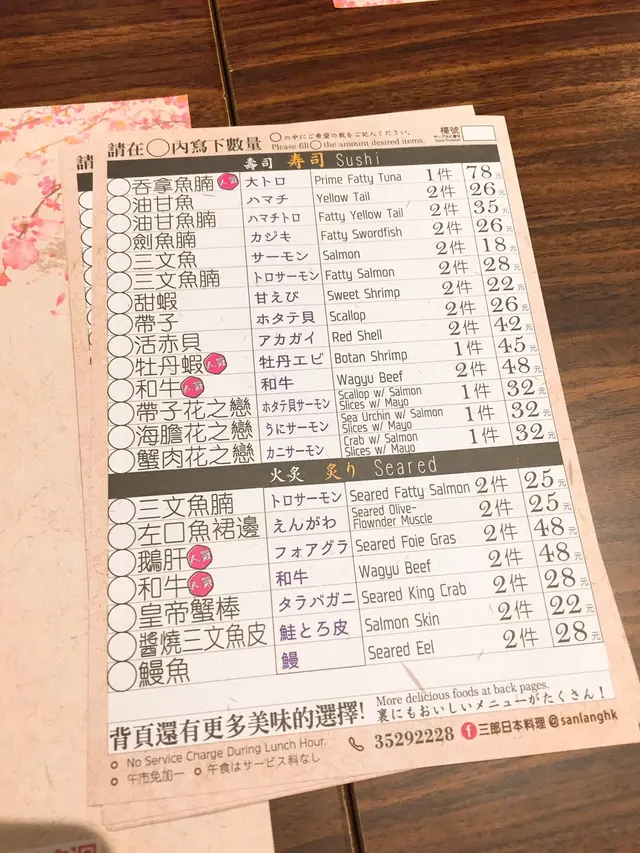 請在○內寫下數量 ○の中にご希望の数をご記入ください。 檯號
Please fill ○ the amount desired items.
壽司 寿司 Sushi
吞拿魚腩 人気 大トロ Prime Fatty Tuna 1件 78元
油甘魚 ハマチ Yellow Tail 2件 26元
油甘魚腩 ハマチトロ Fatty Yellow Tail 2件 35元
劍魚腩 カジキ Fatty Swordfish 2件 26元
三文魚 サーモン Salmon 2件 18元
三文魚腩 トロサーモン Fatty Salmon 2件 28元
甜蝦 甘えび Sweet Shrimp 2件 22元
帶子 ホタテ貝 Scallop 2件 26元
活赤貝 アカガイ Red Shell 2件 42元
牡丹蝦 人気 牡丹エビ Botan Shrimp 1件 45元
和牛 人気 和牛 Wagyu Beef 2件 48元
帶子花之戀 ホタテ貝サーモン Scallop w/ Salmon Slices w/ Mayo 1件 32元
海膽花之戀 うにサーモン Sea Urchin w/ Salmon Slices w/ Mayo 1件 32元
蟹肉花之戀 カニサーモン Crab w/ Salmon Slices w/ Mayo 1件 32元
火炙 炙り Seared
三文魚腩 トロサーモン Seared Fatty Salmon 2件 25元
左口魚裙邊 えんがわ Seared Olive-Flownder Muscle 2件 25元
鵝肝 人気 フォアグラ Seared Foie Gras 2件 48元
和牛 人気 和牛 Wagyu Beef 2件 48元
皇帝蟹棒 タラバガニ Seared King Crab 2件 28元
醬燒三文魚皮 鮭とろ皮 Salmon Skin 2件 22元
鰻魚 鰻 Seared Eel 2件 28元
背頁還有更多美味的選擇! More delicious foods at back pages.
裏にもおいしいメニューがたくさん!
No Service Charge During Lunch Hour.
午市免加一 午食はサービス料なし
35292228 三郎日本料理 @sanlanghk